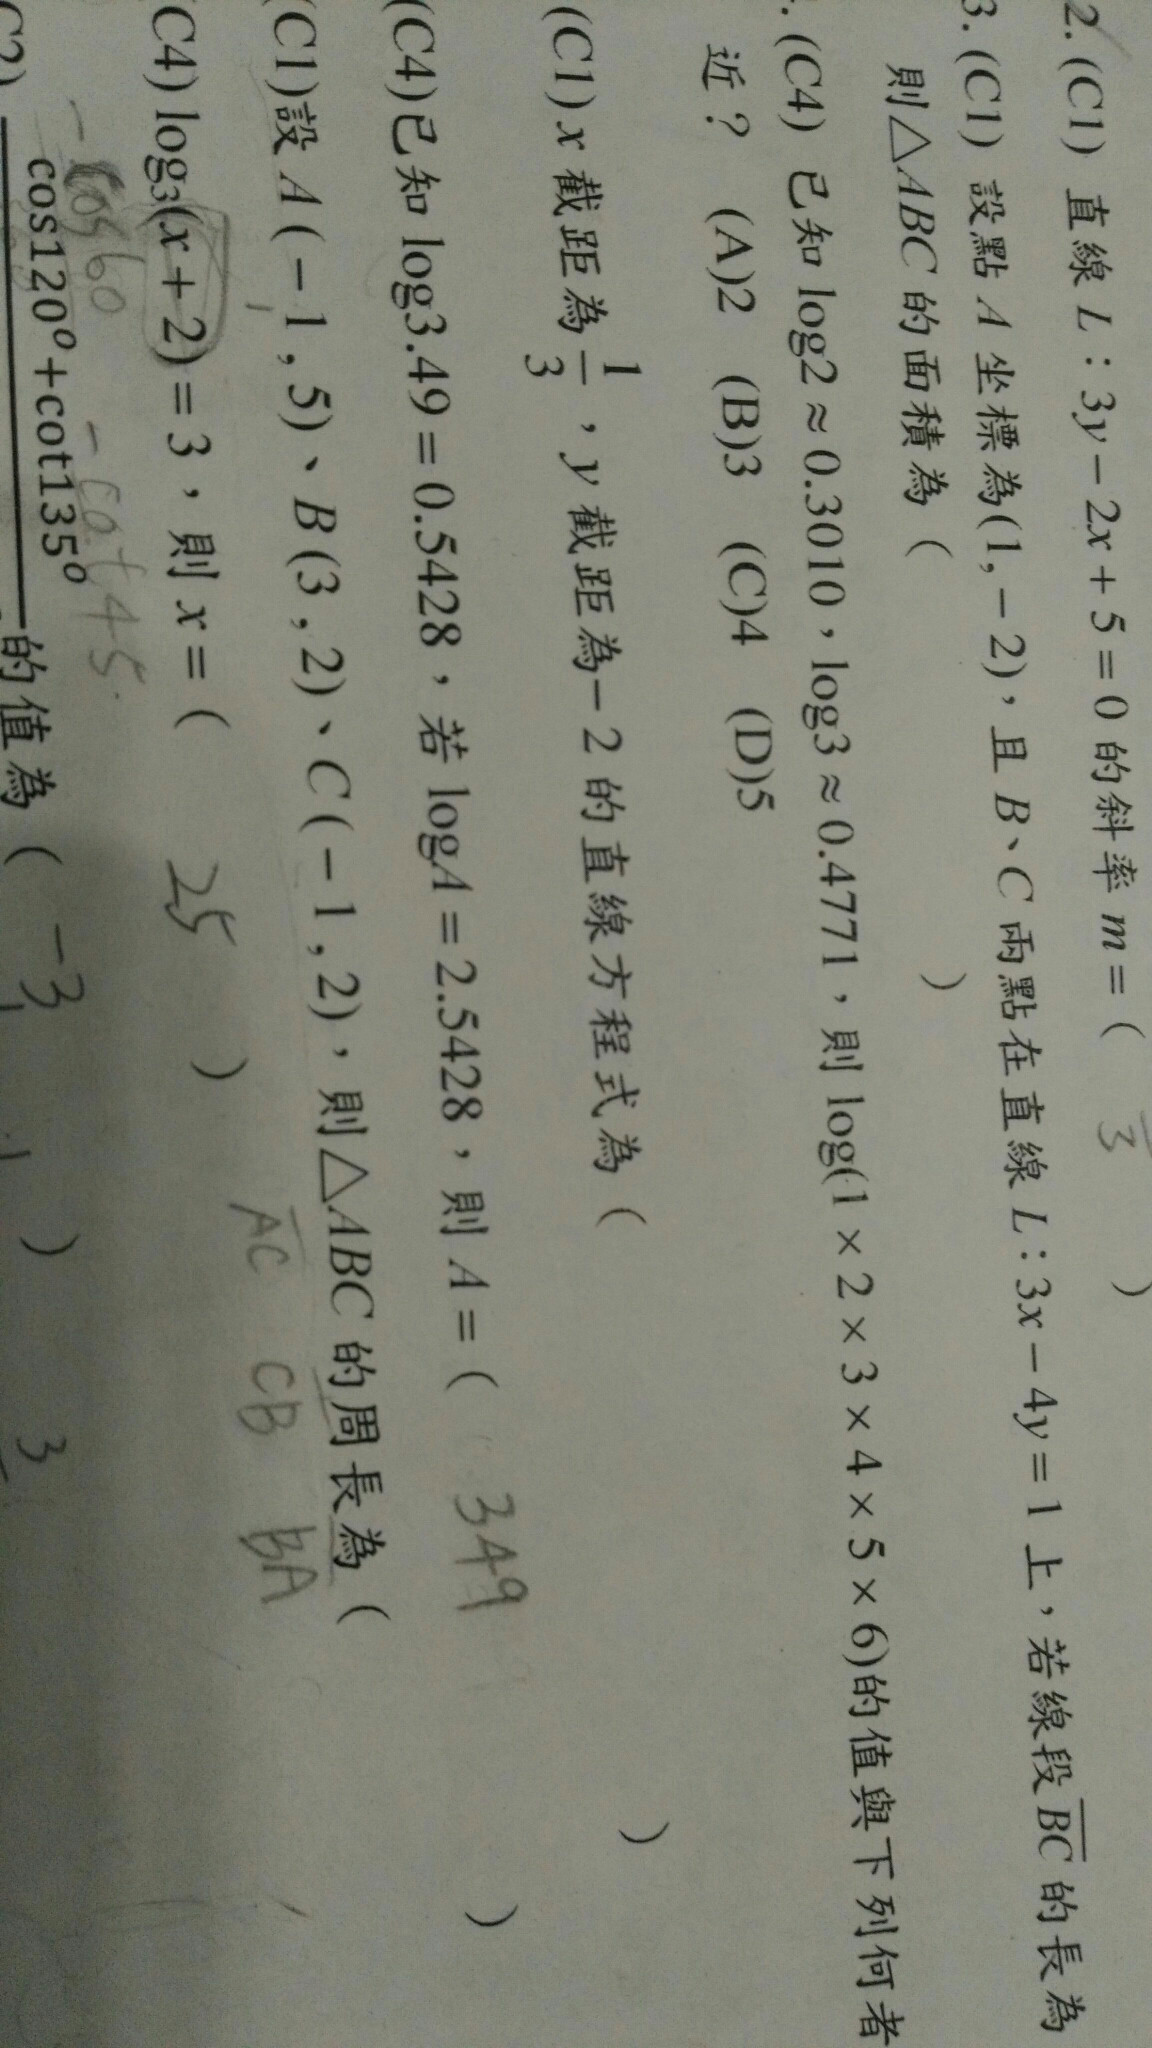 2. (C1) 直線 L：3y－2x＋5＝0 的斜率 m＝(   3   )
3. (C1) 設點 A 坐標為(1,－2)，且 B、C 兩點在直線 L：3x－4y＝1 上，若線段 BC 的長為
則△ABC 的面積為 (   )
. (C4) 已知 log2≈0.3010，log3≈0.4771，則 log(1×2×3×4×5×6)的值與下列何者
近？ (A)2 (B)3 (C)4 (D)5
(C1) x 截距為 1/3，y 截距為－2 的直線方程式為 (   )
(C4)已知 log3.49＝0.5428，若 logA＝2.5428，則 A＝( 349 )
(C1)設 A(－1,5)、B(3,2)、C(－1,2)，則△ABC 的周長為 (
AC CB BA
C4) log₃(x＋2)＝3，則 x＝( 25 )
-cos60 -cot45
C2) cos120°+cot135° 的值為 ( -3 )
3